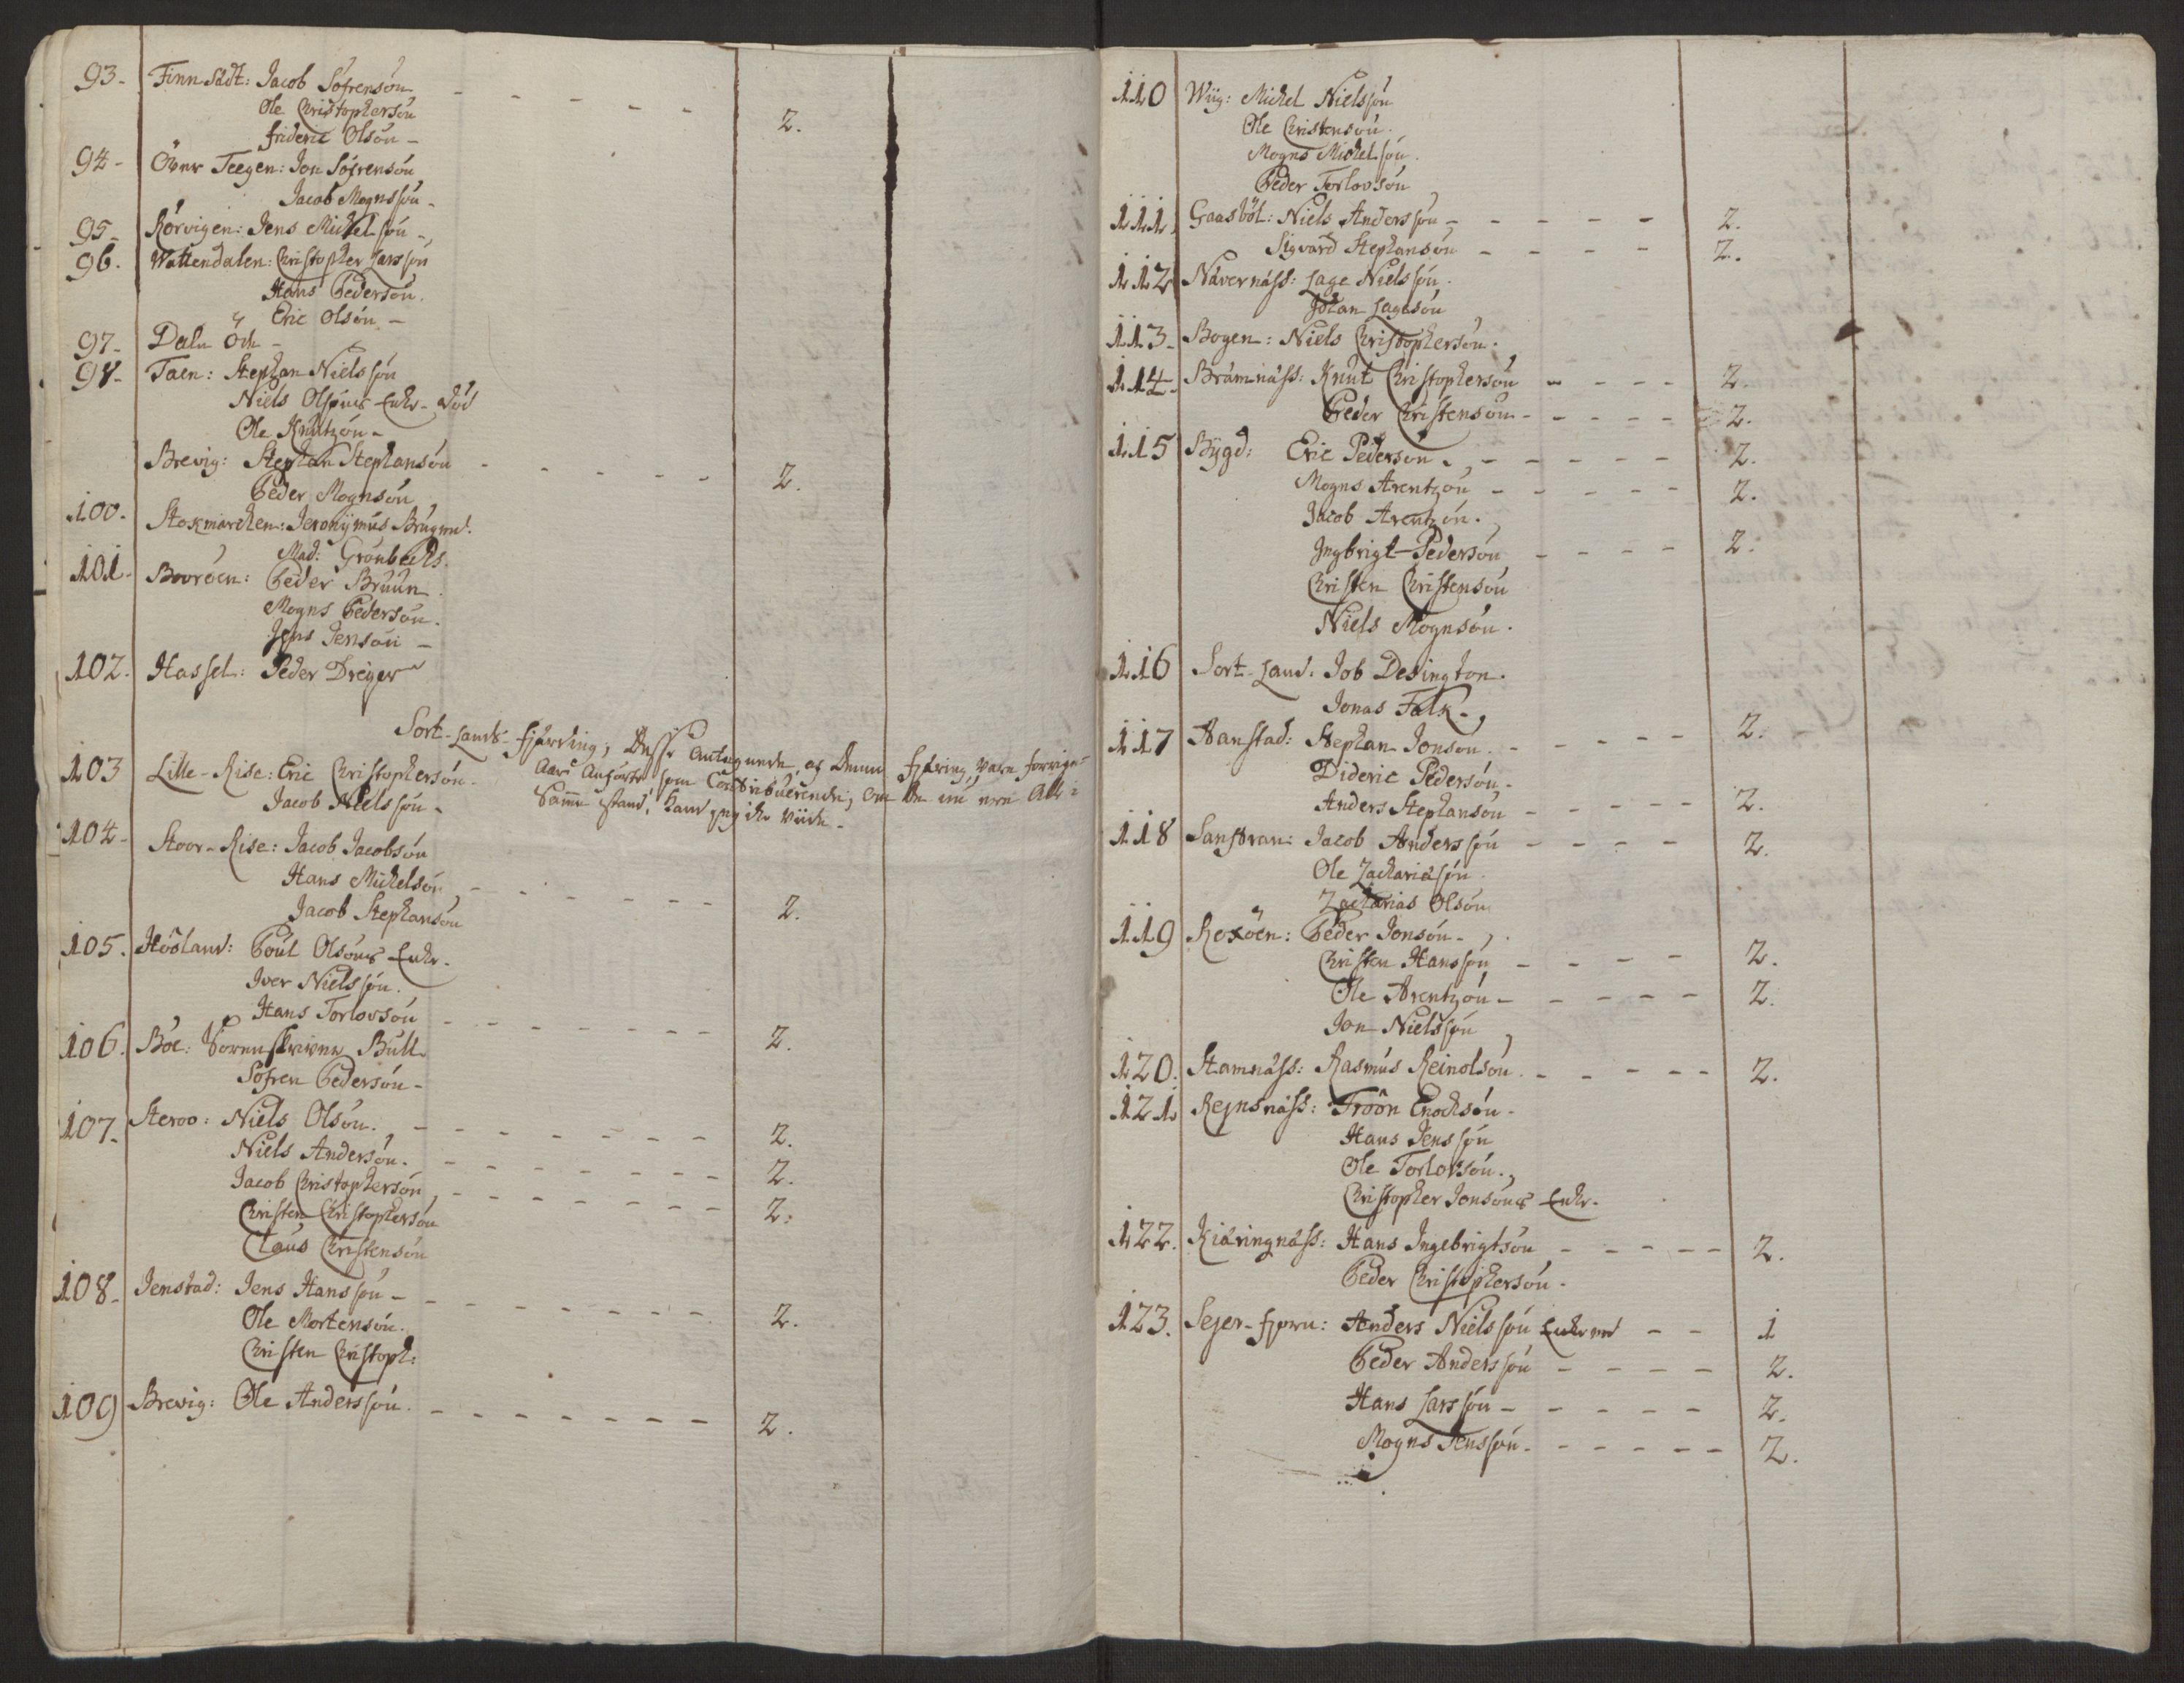 93- Finnsädt: Jacob Söfrensön - - - - - - 2.
Ole Christophersön
frideric Olsön -
94- Över Teegen: Jon Söfrensön
Jacob Mognssön -
95- Rörvigen: Jens Michelssön -
96. Wattendalen: Christopher Larssön
Hans Pedersön.
Eric Olsön -
97- Daln
98- Taen: Stephan Nielssön
Niels Olsöns Enke - död
Ole Knutzön -
Brevig: Stephan Stephansön - - - - - 2.
Peder Mognsön
100. Stokmarchen: Jeronÿmus
Mad: Grönbechs.
101. Bovröen: Peder Bruun.
Mogns Pedersön.
Jens Jensön -
102. Hassel: Peder Dreÿer
Sort-Lands-fjärding; Desse antegnede af denne fjering vare forrige
Aars Anförte som Contribuerende, om de nu ere alle i
Samme stand, kand jeg ikke viide -
103 Lille-Rise: Eric Christophersön -
Jacob Nielssön -
104- Stoor-Rise: Jacob Jacobsön
Hans Michelsön - - - - - - 2.
Jacob Stephansön
105. Höoland: Poul Olsöns Enke.
Iver Nielssön.
Hans Torlovsön - - - - - - - 2.
106. Böe: Sorenskriver Bull
Söfren Pedersön -
107- Steroo: Niels Olsön. - - - - - - - 2.
Niels Andersön. - - - - - - - 2.
Jacob Christophersön - - - - - - - 2.
Christen Christophersön
Claus Christensön
108- Jenstad: Jens Hanssön - - - - - - - - 2.
Ole Mortensön.
Christen Christoph:
109 Brevig: Ole Anderssön. - - - - - - - 2.
110 Wiig: Michel Nielssön
Ole Christensön.
Mogns Michelssön.
Peder Torlovsön
111. Gaasböl: Niels Anderssön, - - - - - 2.
Sigvard Stephansön - - - - 2.
112 Nävernäss: Lage Nielssön.
Johan Lagesön
113- Bogen: Niels Christophersön.
114- Brämnäss: Knut Christophersön - - - - 2.
Peder Christensön - - - - - 2.
115 Bÿgd: Eric Pedersön. - - - - - 2.
Mogns Arentzön - - - - - 2.
Jacob Arentzön.
Jngbrigt Pedersön - - - - 2.
Christen Christensön
Niels Mognsön.
116 Sort-Land: Job Desington.
Jonas Falk -
117 Aanstad: Stephan Jonsön. - - - - - 2.
Dideric Pedersön -
Anders Stephansön - - - - - 2.
118 Sanstran: Jacob Anderssön - - - - 2.
Ole Zachariasön.
Zacharias Olsön
119 Roxöen: Peder Jonsön -
Christen Hanssön - - - - 2.
Ole Arentzön - - - - - 2.
Jon Nielssön
120. Stamnäss: Rasmus Reinolsön. - - - - - 2.
121 Rejnsnäss: Tröön Enochsön -
Hans Jenssön
Ole Torlovsön.
Christopher Jonsöns Enke.
122. Kiäringnäss: Hans Ingebrigtsön - - - - - 2.
Peder Christophersön.
123. Sejer-fjorn: Anders Nielssön - - 1
Peder Anderssön - - - - 2.
Hans Larssön - - - - - 2.
Mogns Jenssön - - - - - - 2.